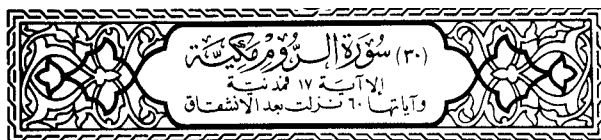 (٣٠) سُورَةُ الرُّومِ مَكِيَّة
إلا آية ١٧ فمدنية
وآياتها ٦٠ نزلت بعد الانشقاق